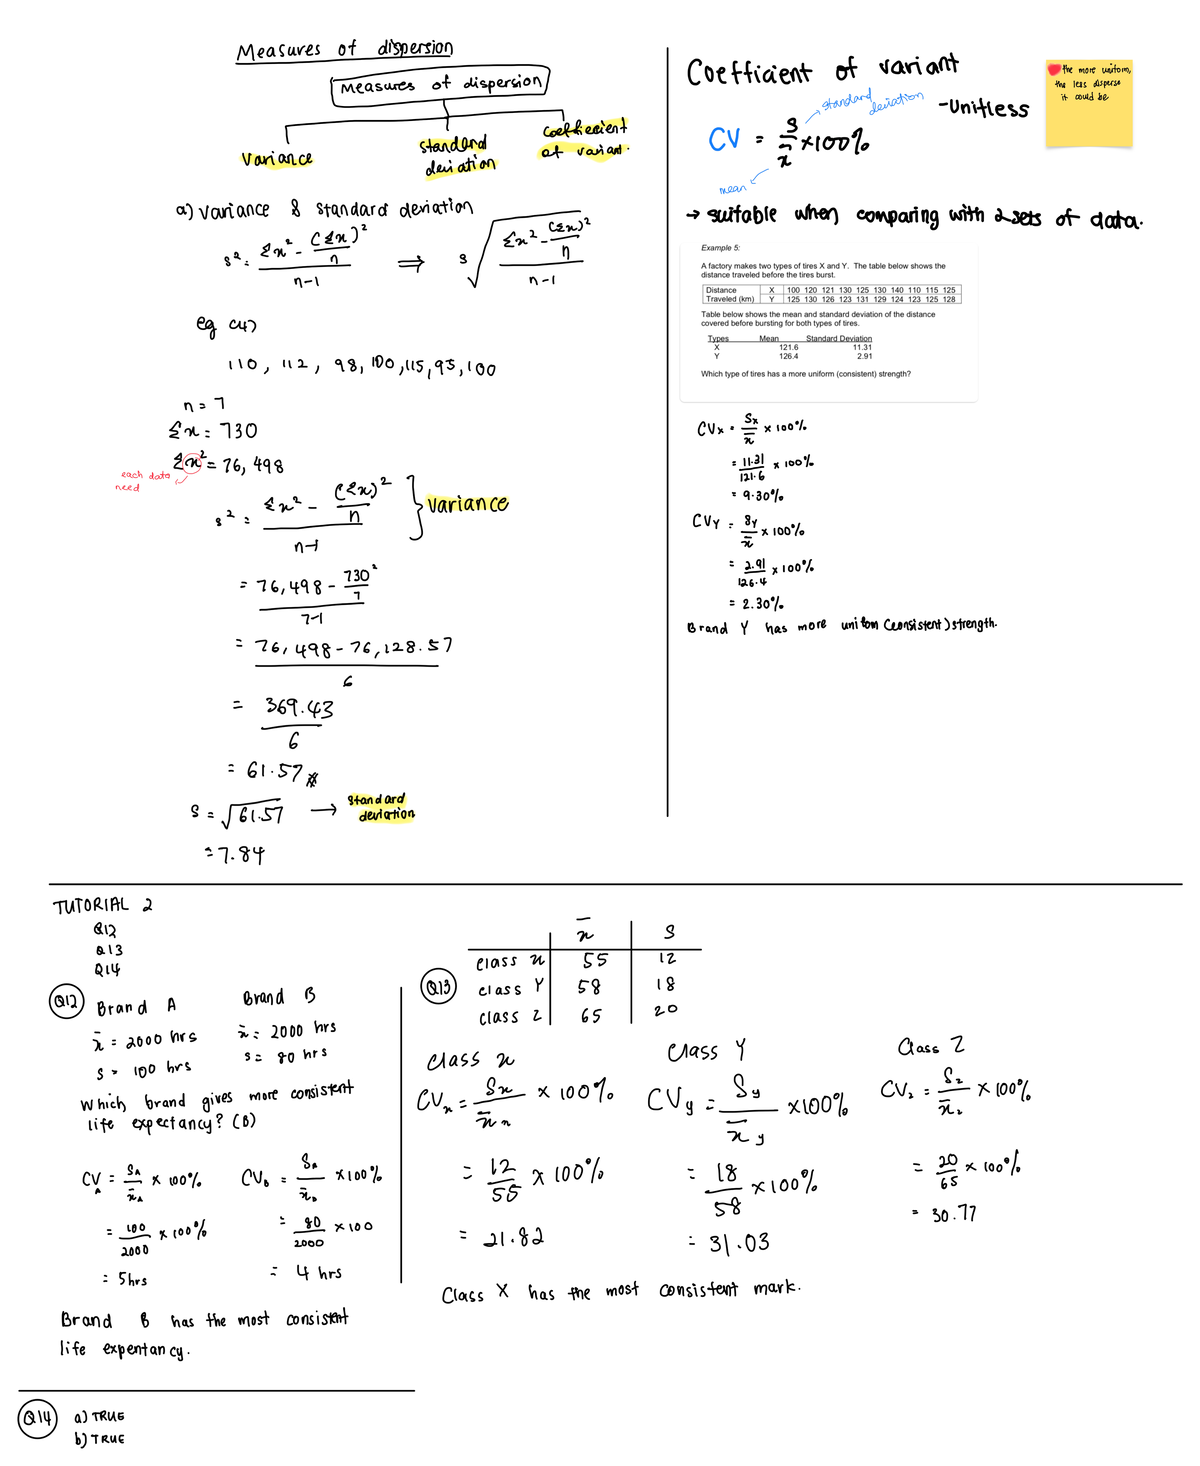 Measures of dispersion
Measures of dispersion
Variance
standard deviation
Coefficient of variant.
a) Variance & standard deviation
s² = (Σx² - (Σx)²/n) / (n-1) ⇒ s √((Σx² - (Σx)²/n) / (n-1))
eg (4)
110, 112, 98, 100, 115, 95, 100
n = 7
Σx = 730
Σx² = 76,498
each data need
s² = (Σx² - (Σx)²/n) / (n-1) } Variance
= (76,498 - 730²/7) / (7-1)
= (76,498 - 76,128.57) / 6
= 369.43 / 6
= 61.57 #
s = √61.57 → standard deviation
= 7.84
Coefficient of variant
-Unitless
the more uniform,
the less disperse
it could be
CV = s/x̄ × 100%
standard deviation
mean
→ suitable when comparing with 2 sets of data.
Example 5:
A factory makes two types of tires X and Y. The table below shows the
distance traveled before the tires burst.
Distance X 100 120 121 130 125 130 140 110 115 125
Traveled (km) Y 125 130 126 123 131 129 124 123 125 128
Table below shows the mean and standard deviation of the distance
covered before bursting for both types of tires.
Types Mean Standard Deviation
X 121.6 11.31
Y 126.4 2.91
Which type of tires has a more uniform (consistent) strength?
CVx = Sx/x̄ × 100%
= 11.31/121.6 × 100%
= 9.30%
CVY = SY/x̄ × 100%
= 2.91/126.4 × 100%
= 2.30%
Brand Y has more uniform (consistent) strength.
TUTORIAL 2
Q12
Q13
Q14
Q12
Brand A Brand B
x̄ = 2000 hrs x̄ = 2000 hrs
s = 100 hrs s = 80 hrs
Which brand gives more consistent
life expectancy? (B)
CV_A = S_A/x̄_A × 100% CV_B = S_B/x̄_B × 100%
= 100/2000 × 100% = 80/2000 × 100
= 5 hrs = 4 hrs
Brand B has the most consistent
life expentancy.
Q13
x̄ S
class x 55 12
class Y 58 18
class Z 65 20
Class x Class Y Class Z
CVx = Sx/x̄x × 100% CVy = Sy/x̄y × 100% CVz = Sz/x̄z × 100%
= 12/55 × 100% = 18/58 × 100% = 20/65 × 100%
= 21.82 = 31.03 = 30.77
Class X has the most consistent mark.
Q14 a) TRUE
b) TRUE